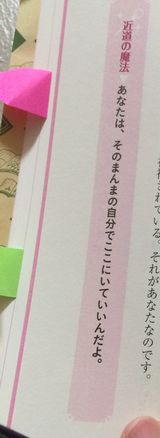 近道の魔法
あなたは、そのまんまの自分でここにいていいんだよ。
されている。それがあなたなのです。